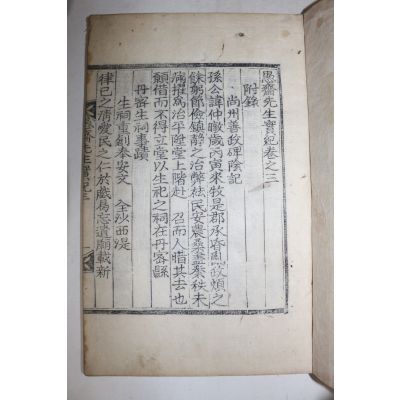 愚齋先生實紀卷之三
附錄
尙州善政碑陰記
孫公諱仲暾歲丙寅來牧是郡承昏亂政煩之
餘躬節儉鎮靜之治弊祛民安農桑 秩未
滿擢爲治平陞堂上階赴 召而人惜其去也
願借而不得立堂以生祀之祠在丹密縣
丹密生祠事蹟
生祠重創奉安文 全沙西湜
律己之淸愛民之仁於戲曷忘遺廟載新
愚齋先生實紀三